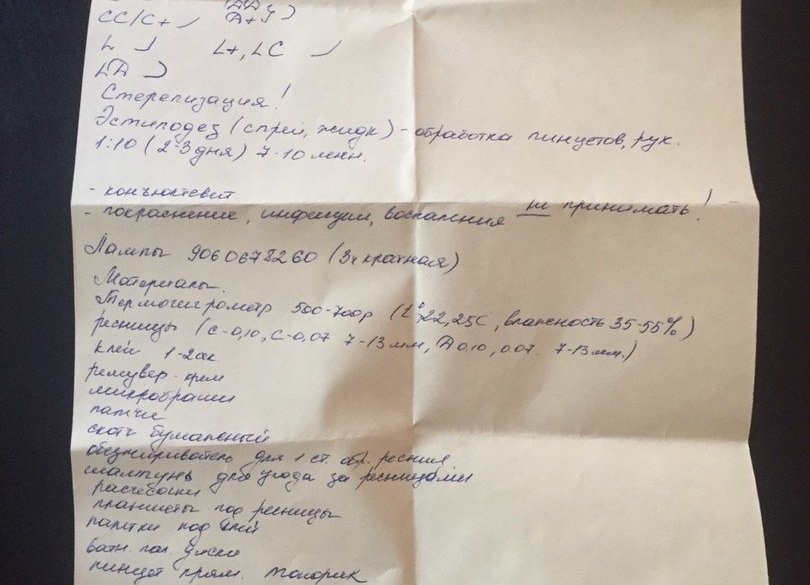 CC/C+
A+J
L
L+, LC
LD
Стерелизация!
Эстилодез (спрей, жидк) - обработка пинцетов, рук.
1:10 (2-3 дня) 7-10 мин.
- конъюктевит
- покраснение, инфекции, воспаления не принимать!
Лампы 9060678260 (3х кратная)
Материалы.
Термогигрометр 500-700р (t° 22,25С, влажность 35-55%)
ресницы (С-0,10, С-0,07 7-13мм, Д 0,10, 0,07. 7-13мм.)
клей 1-2сек
ремувер-крем
микробраши
патчи
скотч бумажный
обезжириватель для 1 ст. обр. ресниц
шампунь для ухода за ресницами
расчёсочки
планшеты под ресницы
палетки под клей
ватн. пал. диски
пинцет прям. топорик